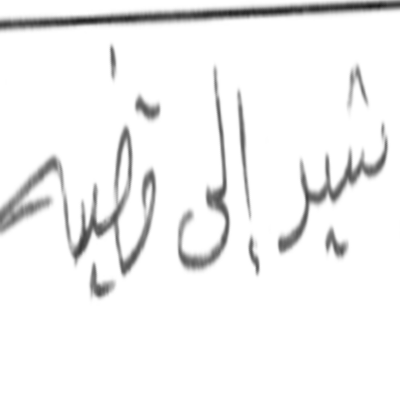 شير إلى قضية